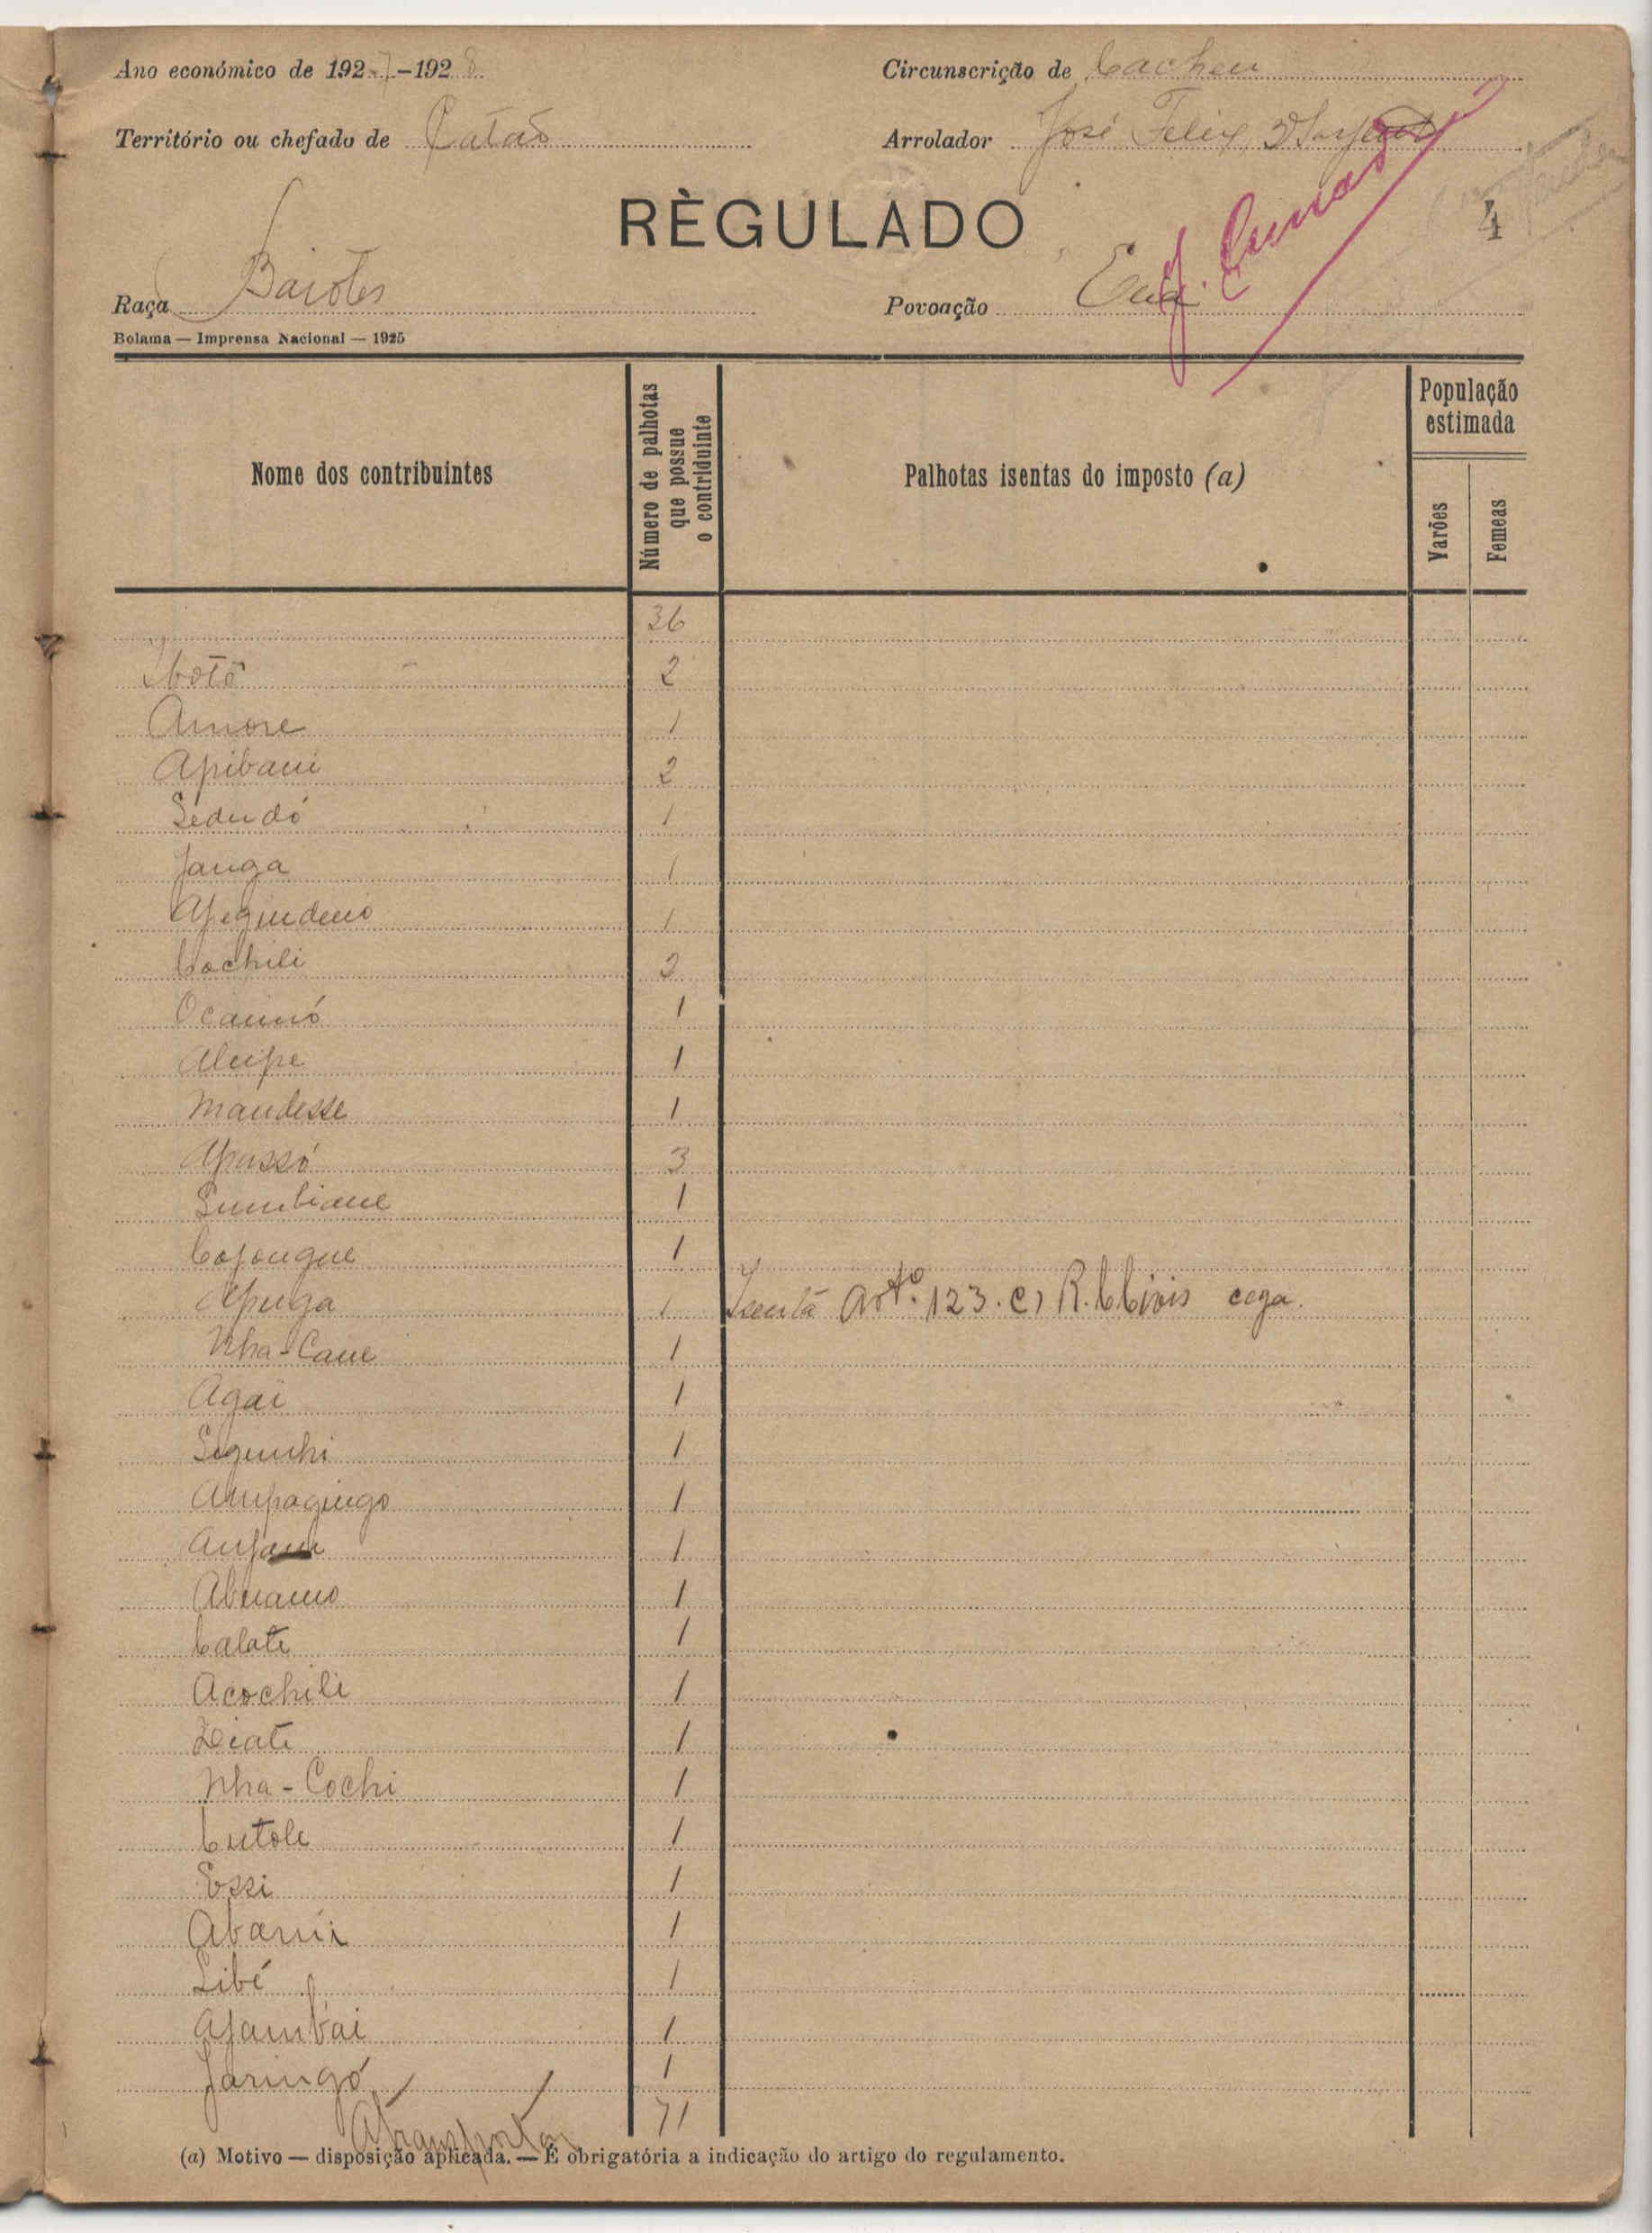 Ano económico de 1927-1928
Circunscrição de Cacheu
Território ou chefado de Catão
Arrolador José Felix, 3º Sargento
RÈGULADO
4
Raça Baiotes
Povoação Eua
Bolama — Imprensa Nacional — 1925
Nome dos contribuintes
Número de palhotas que possue o contriduinte
Palhotas isentas do imposto (a)
População estimada
Varões
Femeas
36
Ibotô 2
Amore 1
Apibani 2
Sédudó 1
Janga 1
1
Cochili 2
1
Aluipe 1
Mandesse 1
Apussó 3
Sumbiane 1
Cojongue 1
Apuga 1 Isenta Artº. 123. e) R. C Civis cega.
Nha-Cane 1
Agai 1
Siguinhi 1
Ampaguigo 1
1
1
Calate 1
Acochili 1
Ziate 1
Nha-Cochi 1
Cutole 1
Essi 1
Abanii 1
Libé 1
Ajambai 1
Jaringó 1
A transportar 71
(a) Motivo — disposição aplicada. — É obrigatória a indicação do artigo do regulamento.